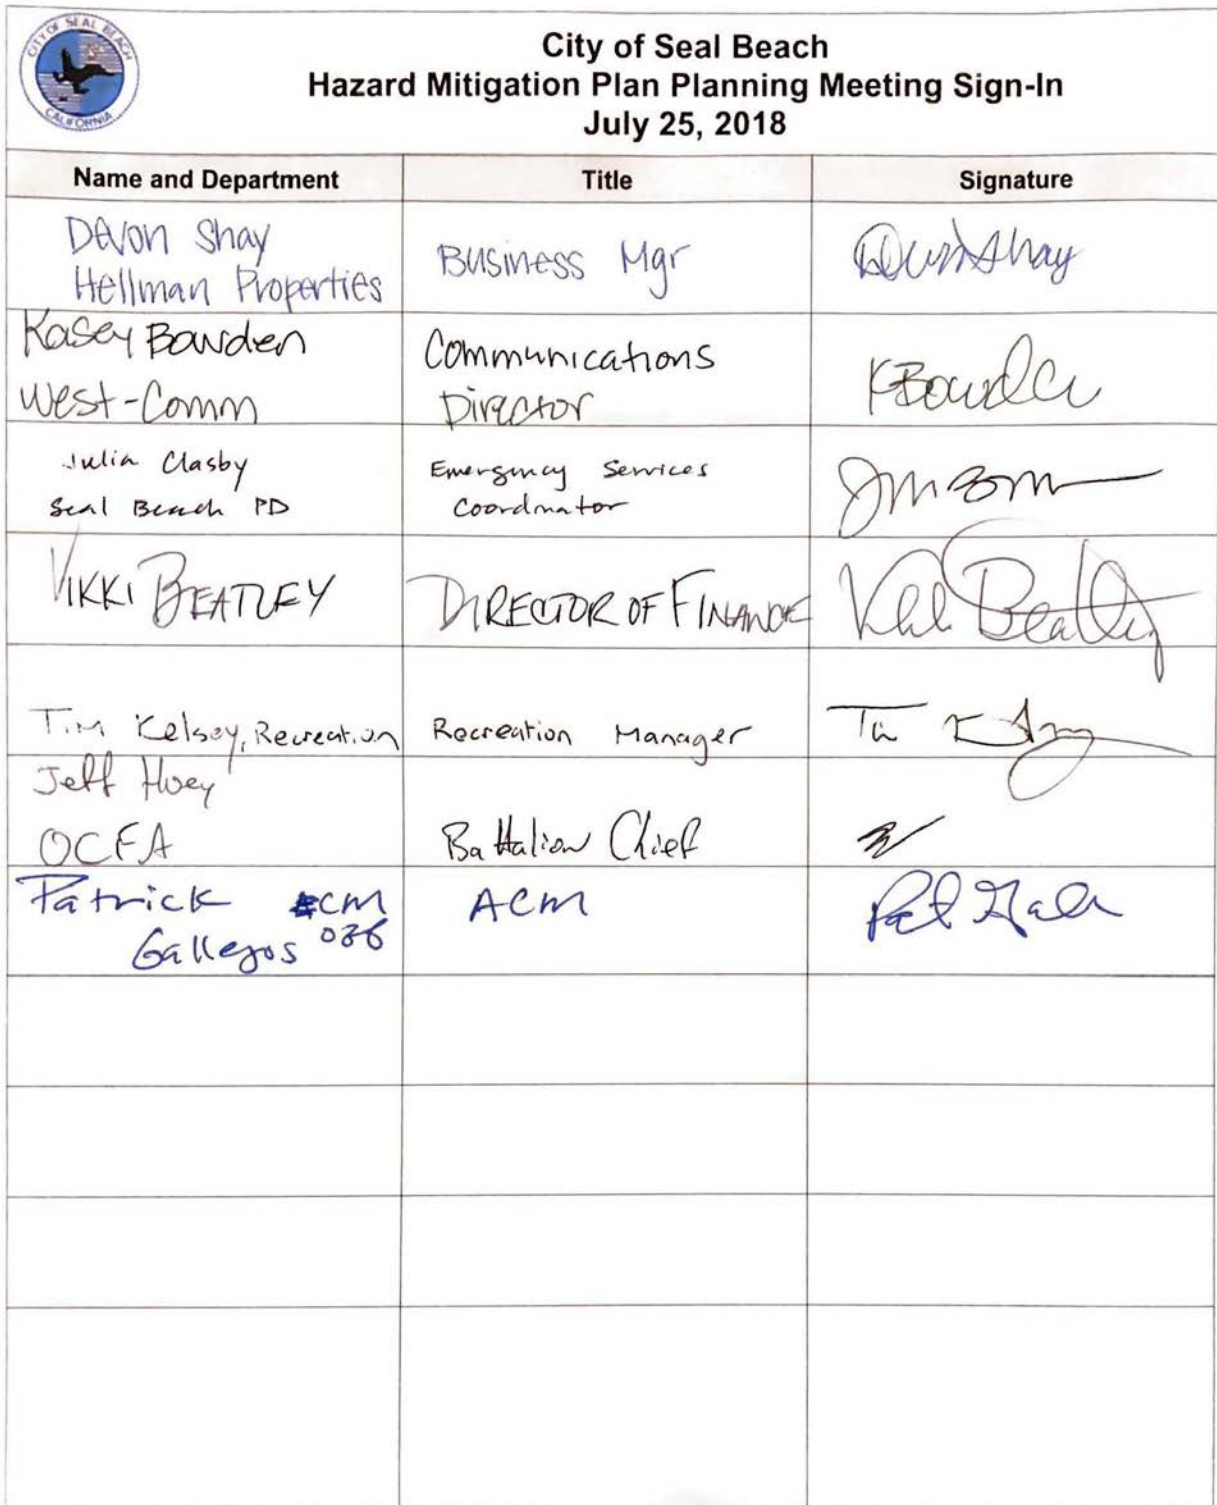 CITY OF SEAL BEACH
CALIFORNIA
City of Seal Beach
Hazard Mitigation Plan Planning Meeting Sign-In
July 25, 2018
Name and Department
Title
Signature
Devon Shay
Hellman Properties
Business Mgr
Devon Shay
Kasey Bowden
West-Comm
Communications
Director
KBowden
Julia Clasby
Seal Beach PD
Emergency Services
Coordinator
VIKKI BEATLEY
DIRECTOR OF FINANCE
Vikki Beatley
Tim Kelsey, Recreation
Recreation Manager
Jeff Hoey
OCFA
Battalion Chief
Patrick
Gallegos
ACM